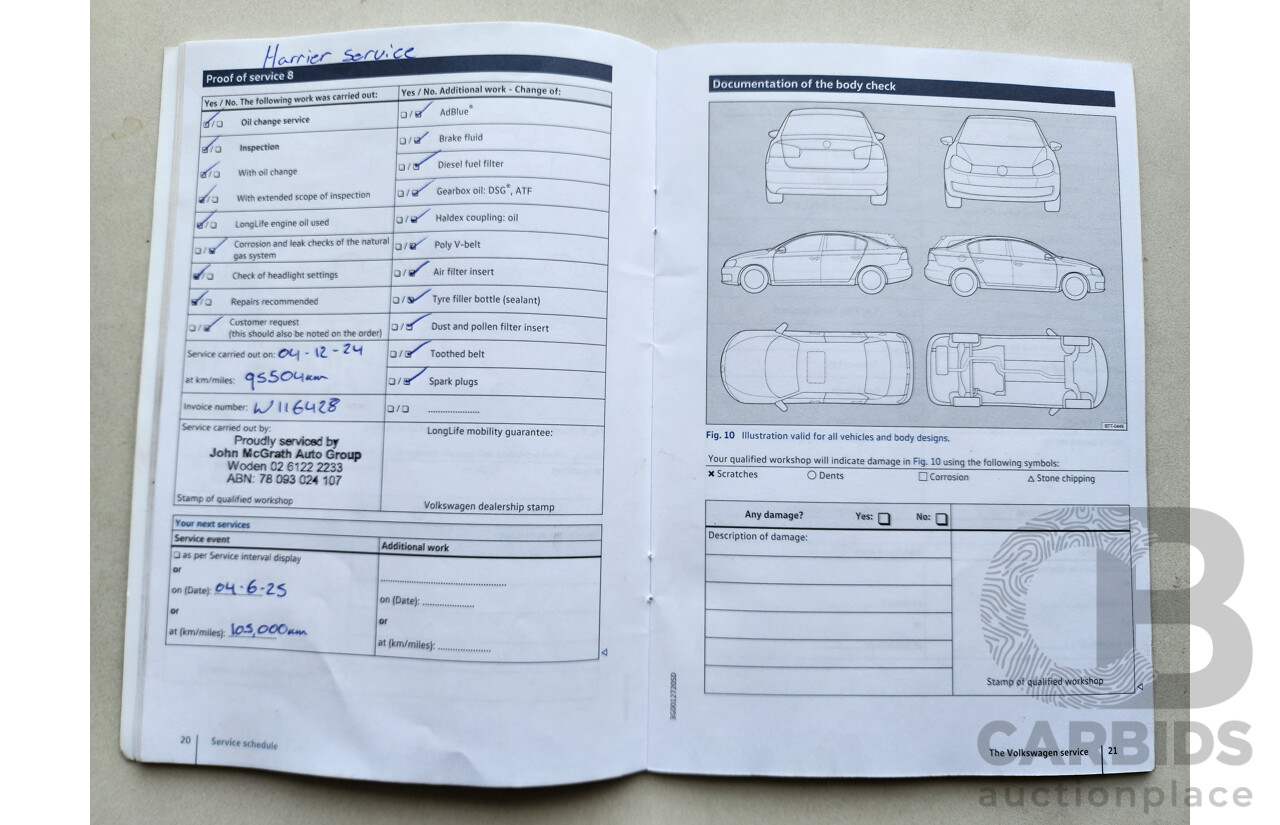 Harrier service
Proof of service 8
Yes / No. The following work was carried out:
Oil change service
Inspection
With oil change
With extended scope of inspection
LongLife engine oil used
Corrosion and leak checks of the natural
gas system
Check of headlight settings
Repairs recommended
Customer request
(this should also be noted on the order)
Service carried out on: 04-12-24
at km/miles: 95504km
Invoice number: W116428
Service carried out by:
Proudly serviced by
John McGrath Auto Group
Woden 02 6122 2233
ABN: 78 093 024 107
Stamp of qualified workshop
Yes / No. Additional work - Change of:
AdBlue®
Brake fluid
Diesel fuel filter
Gearbox oil: DSG®, ATF
Haldex coupling: oil
Poly V-belt
Air filter insert
Tyre filler bottle (sealant)
Dust and pollen filter insert
Toothed belt
Spark plugs
LongLife mobility guarantee:
Volkswagen dealership stamp
Your next services
Service event
as per Service interval display
or
on (Date): 04-6-25
or
at (km/miles): 105,000km
Additional work
on (Date):
or
at (km/miles):
20 Service schedule
Documentation of the body check
Fig. 10 Illustration valid for all vehicles and body designs.
Your qualified workshop will indicate damage in Fig. 10 using the following symbols:
× Scratches ○ Dents □ Corrosion △ Stone chipping
Any damage? Yes: No:
Description of damage:
Stamp of qualified workshop
The Volkswagen service 21
CARBIDS
auctionplace